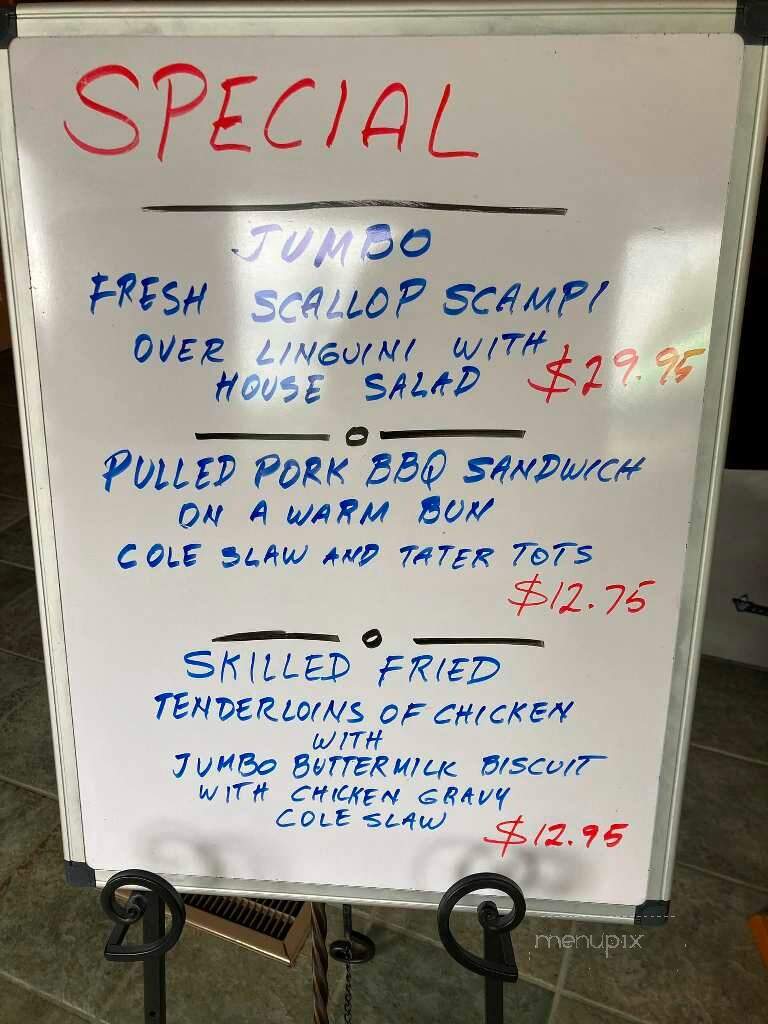 SPECIAL
JUMBO
FRESH SCALLOP SCAMPI
OVER LINGUINI WITH
HOUSE SALAD $29.95
PULLED PORK BBQ SANDWICH
ON A WARM BUN
COLE SLAW AND TATER TOTS
$12.75
SKILLED FRIED
TENDERLOINS OF CHICKEN
WITH
JUMBO BUTTERMILK BISCUIT
WITH CHICKEN GRAVY
COLE SLAW $12.95
menupix